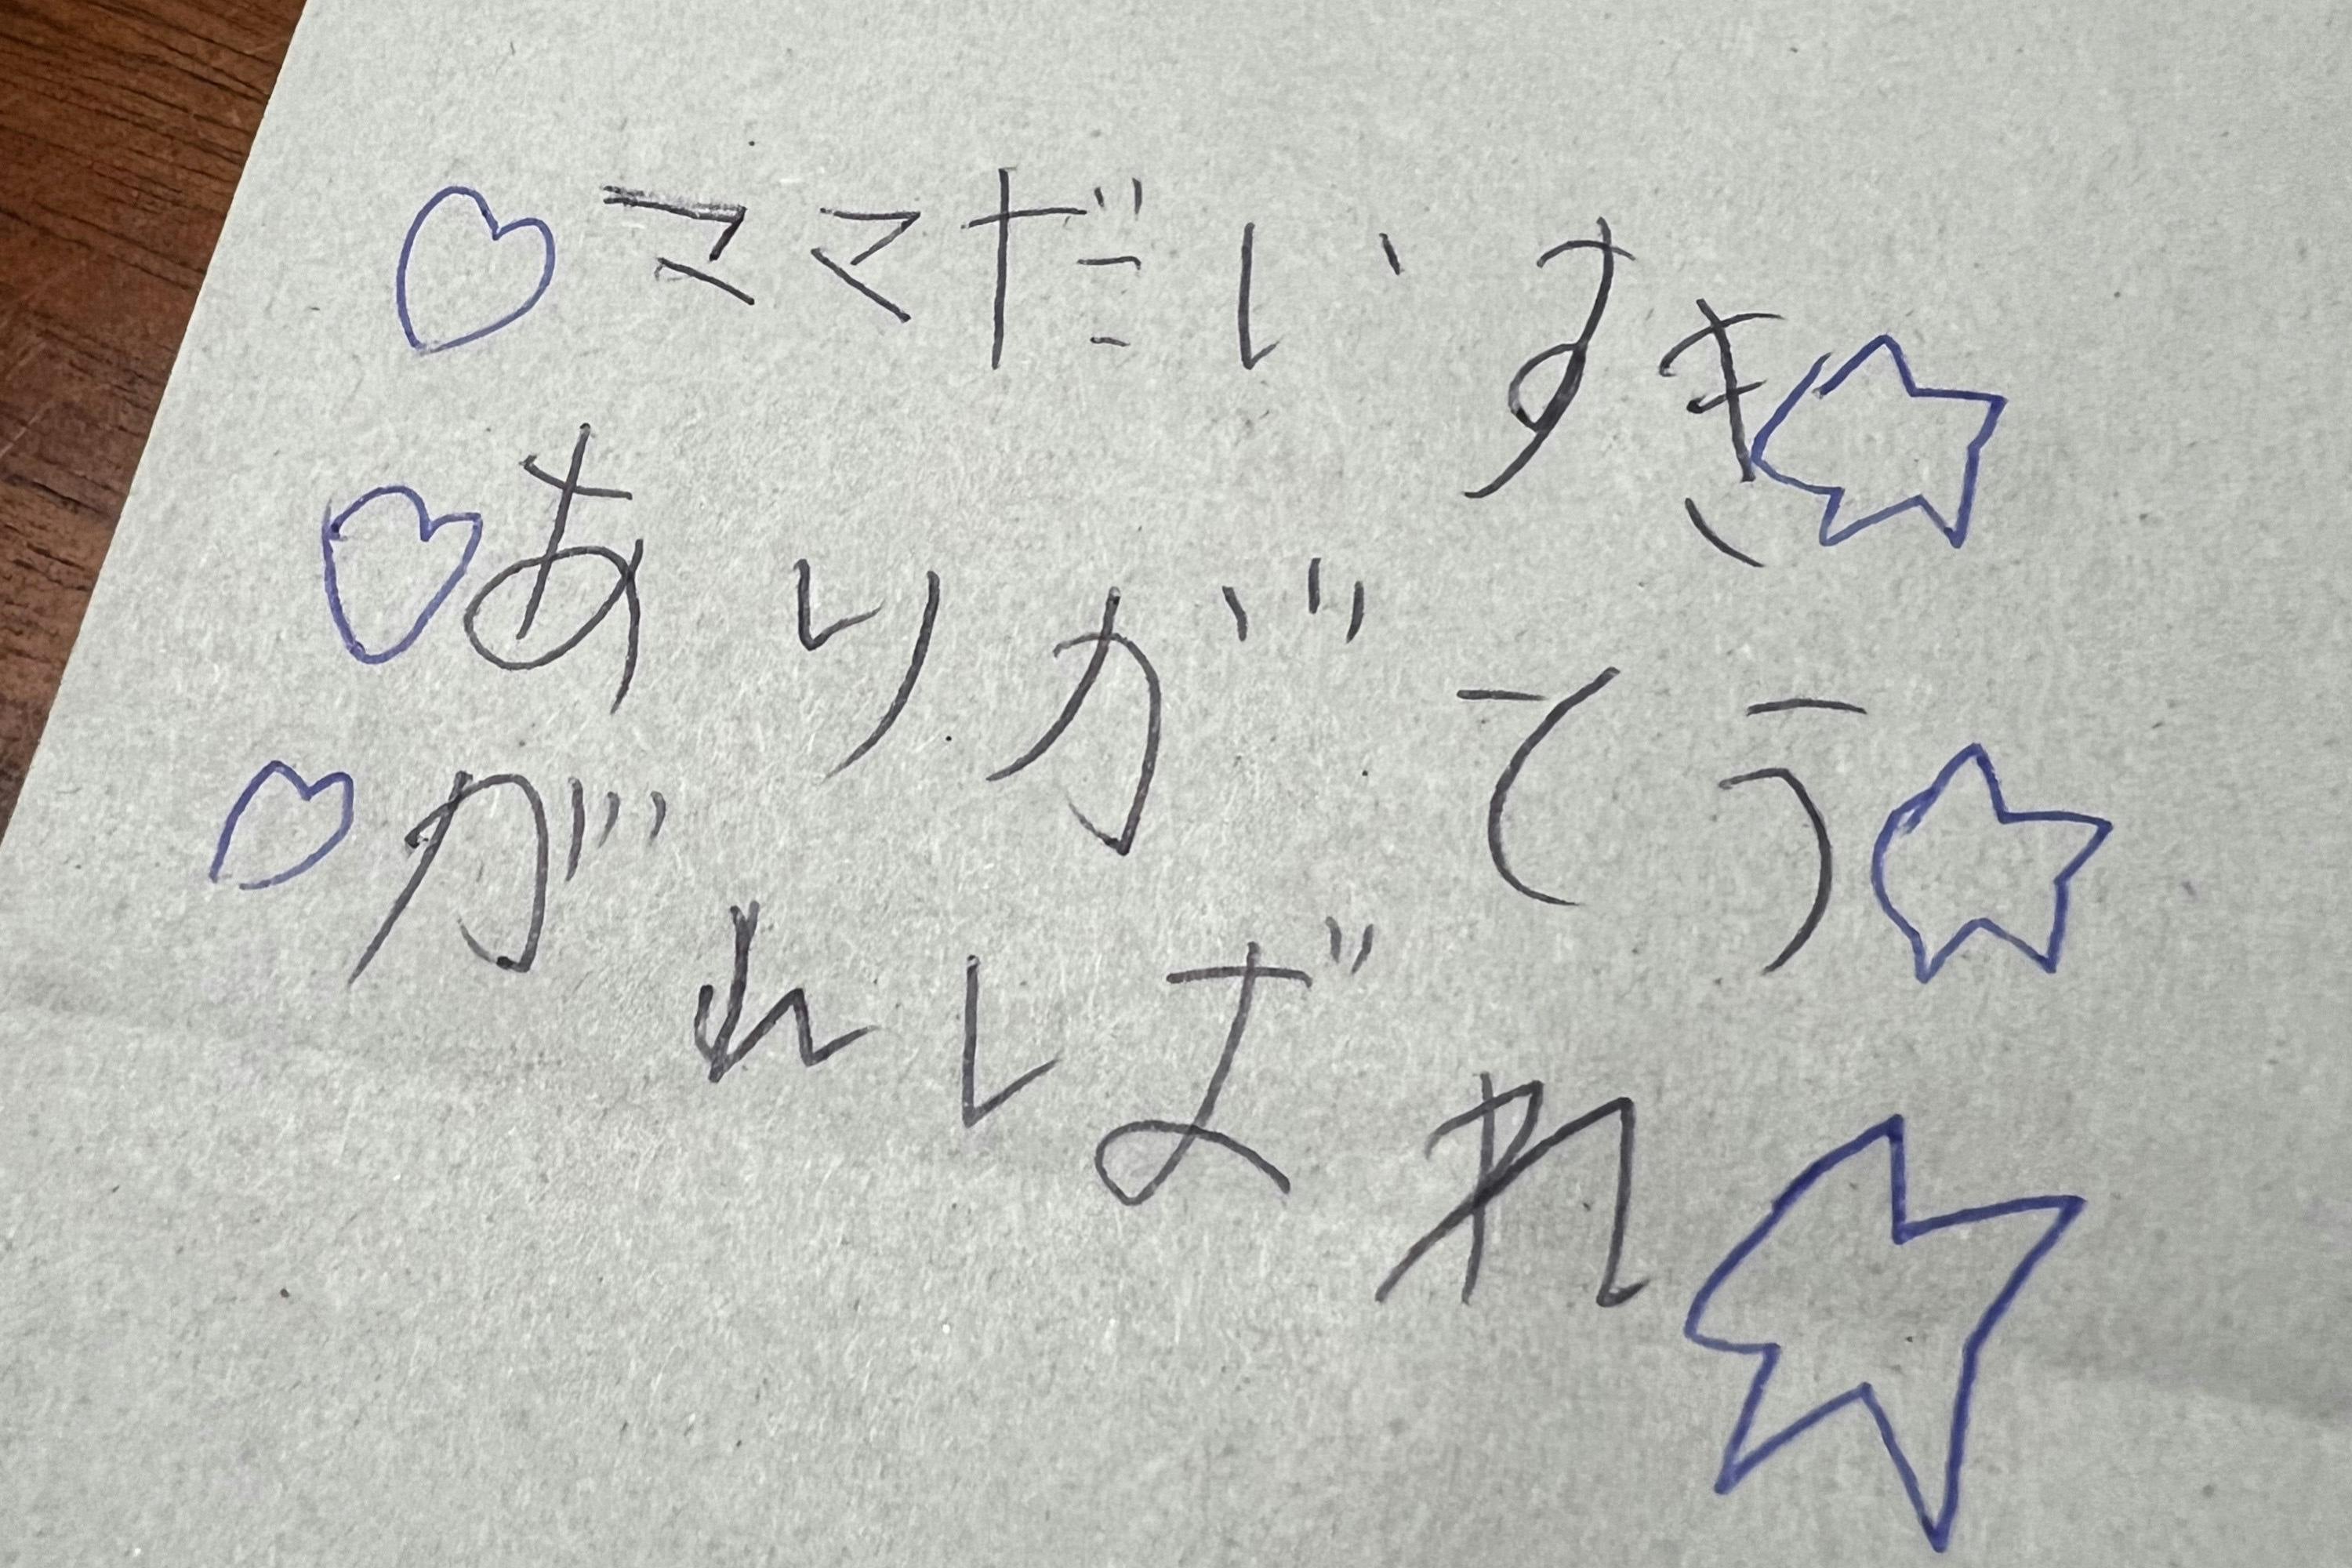 ♡ママだいすき☆
♡ありがとう☆
♡がんばれ☆